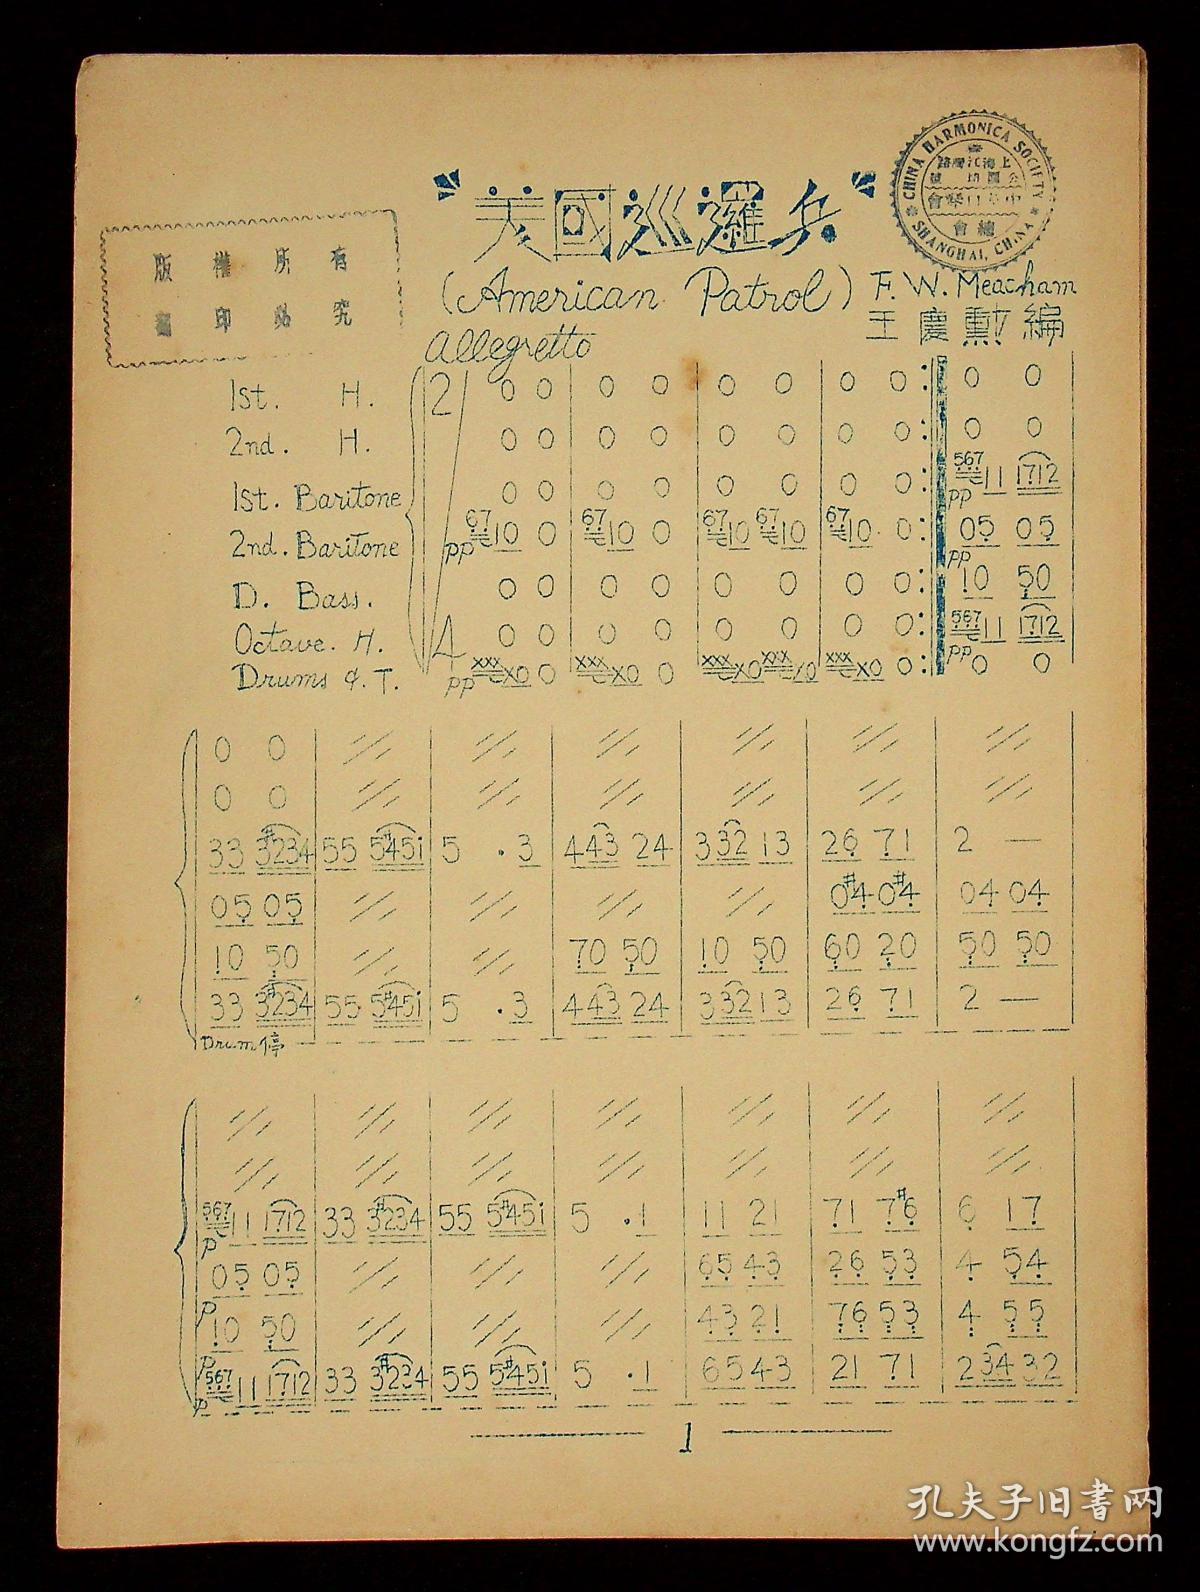 美國巡邏兵
(American Patrol) F. W. Meacham
王慶勳編
Allegretto
版權所有
翻印必究
CHINA HARMONICA SOCIETY
SHANGHAI, CHINA
中華口琴會
總會
1st. H. 2/4 0 0 | 0 0 | 0 0 | 0 0 :| 0 0
2nd. H. 0 0 | 0 0 | 0 0 | 0 0 :| 0 0
1st. Baritone 0 0 | 0 0 | 0 0 | 0 0 :| pp 567 11 1712
2nd. Baritone pp 67 10 0 | 67 10 0 | 67 10 67 10 | 67 10 0 :| pp 05 05
D. Bass. 0 0 | 0 0 | 0 0 | 0 0 :| 10 50
Octave. H. 0 0 | 0 0 | 0 0 | 0 0 :| pp 567 11 1712
Drums & T. pp xxx x0 0 | xxx x0 0 | xxx x0 xxx x0 | xxx x0 0 :| 0 0
0 0 | // | // | // | // | // | //
0 0 | // | // | // | // | // | //
33 3#234 | 55 5#45i | 5 . 3 | 443 24 | 332 13 | 26 71 | 2 —
05 05 | // | // | // | // | 0#4 0#4 | 04 04
10 50 | // | // | 70 50 | 10 50 | 60 20 | 50 50
33 3#234 | 55 5#45i | 5 . 3 | 443 24 | 332 13 | 26 71 | 2 —
Drum停
// | // | // | // | // | // | //
// | // | // | // | // | // | //
p 567 11 1712 | 33 3#234 | 55 5#45i | 5 . 1 | 11 21 | 71 7#6 | 6 17
05 05 | // | // | // | 65 43 | 26 53 | 4 54
p 10 50 | // | // | // | 43 21 | 76 53 | 4 55
p 567 11 1712 | 33 3#234 | 55 5#45i | 5 . 1 | 65 43 | 21 71 | 2 34 32
p
1
孔夫子旧書网
www.kongfz.com